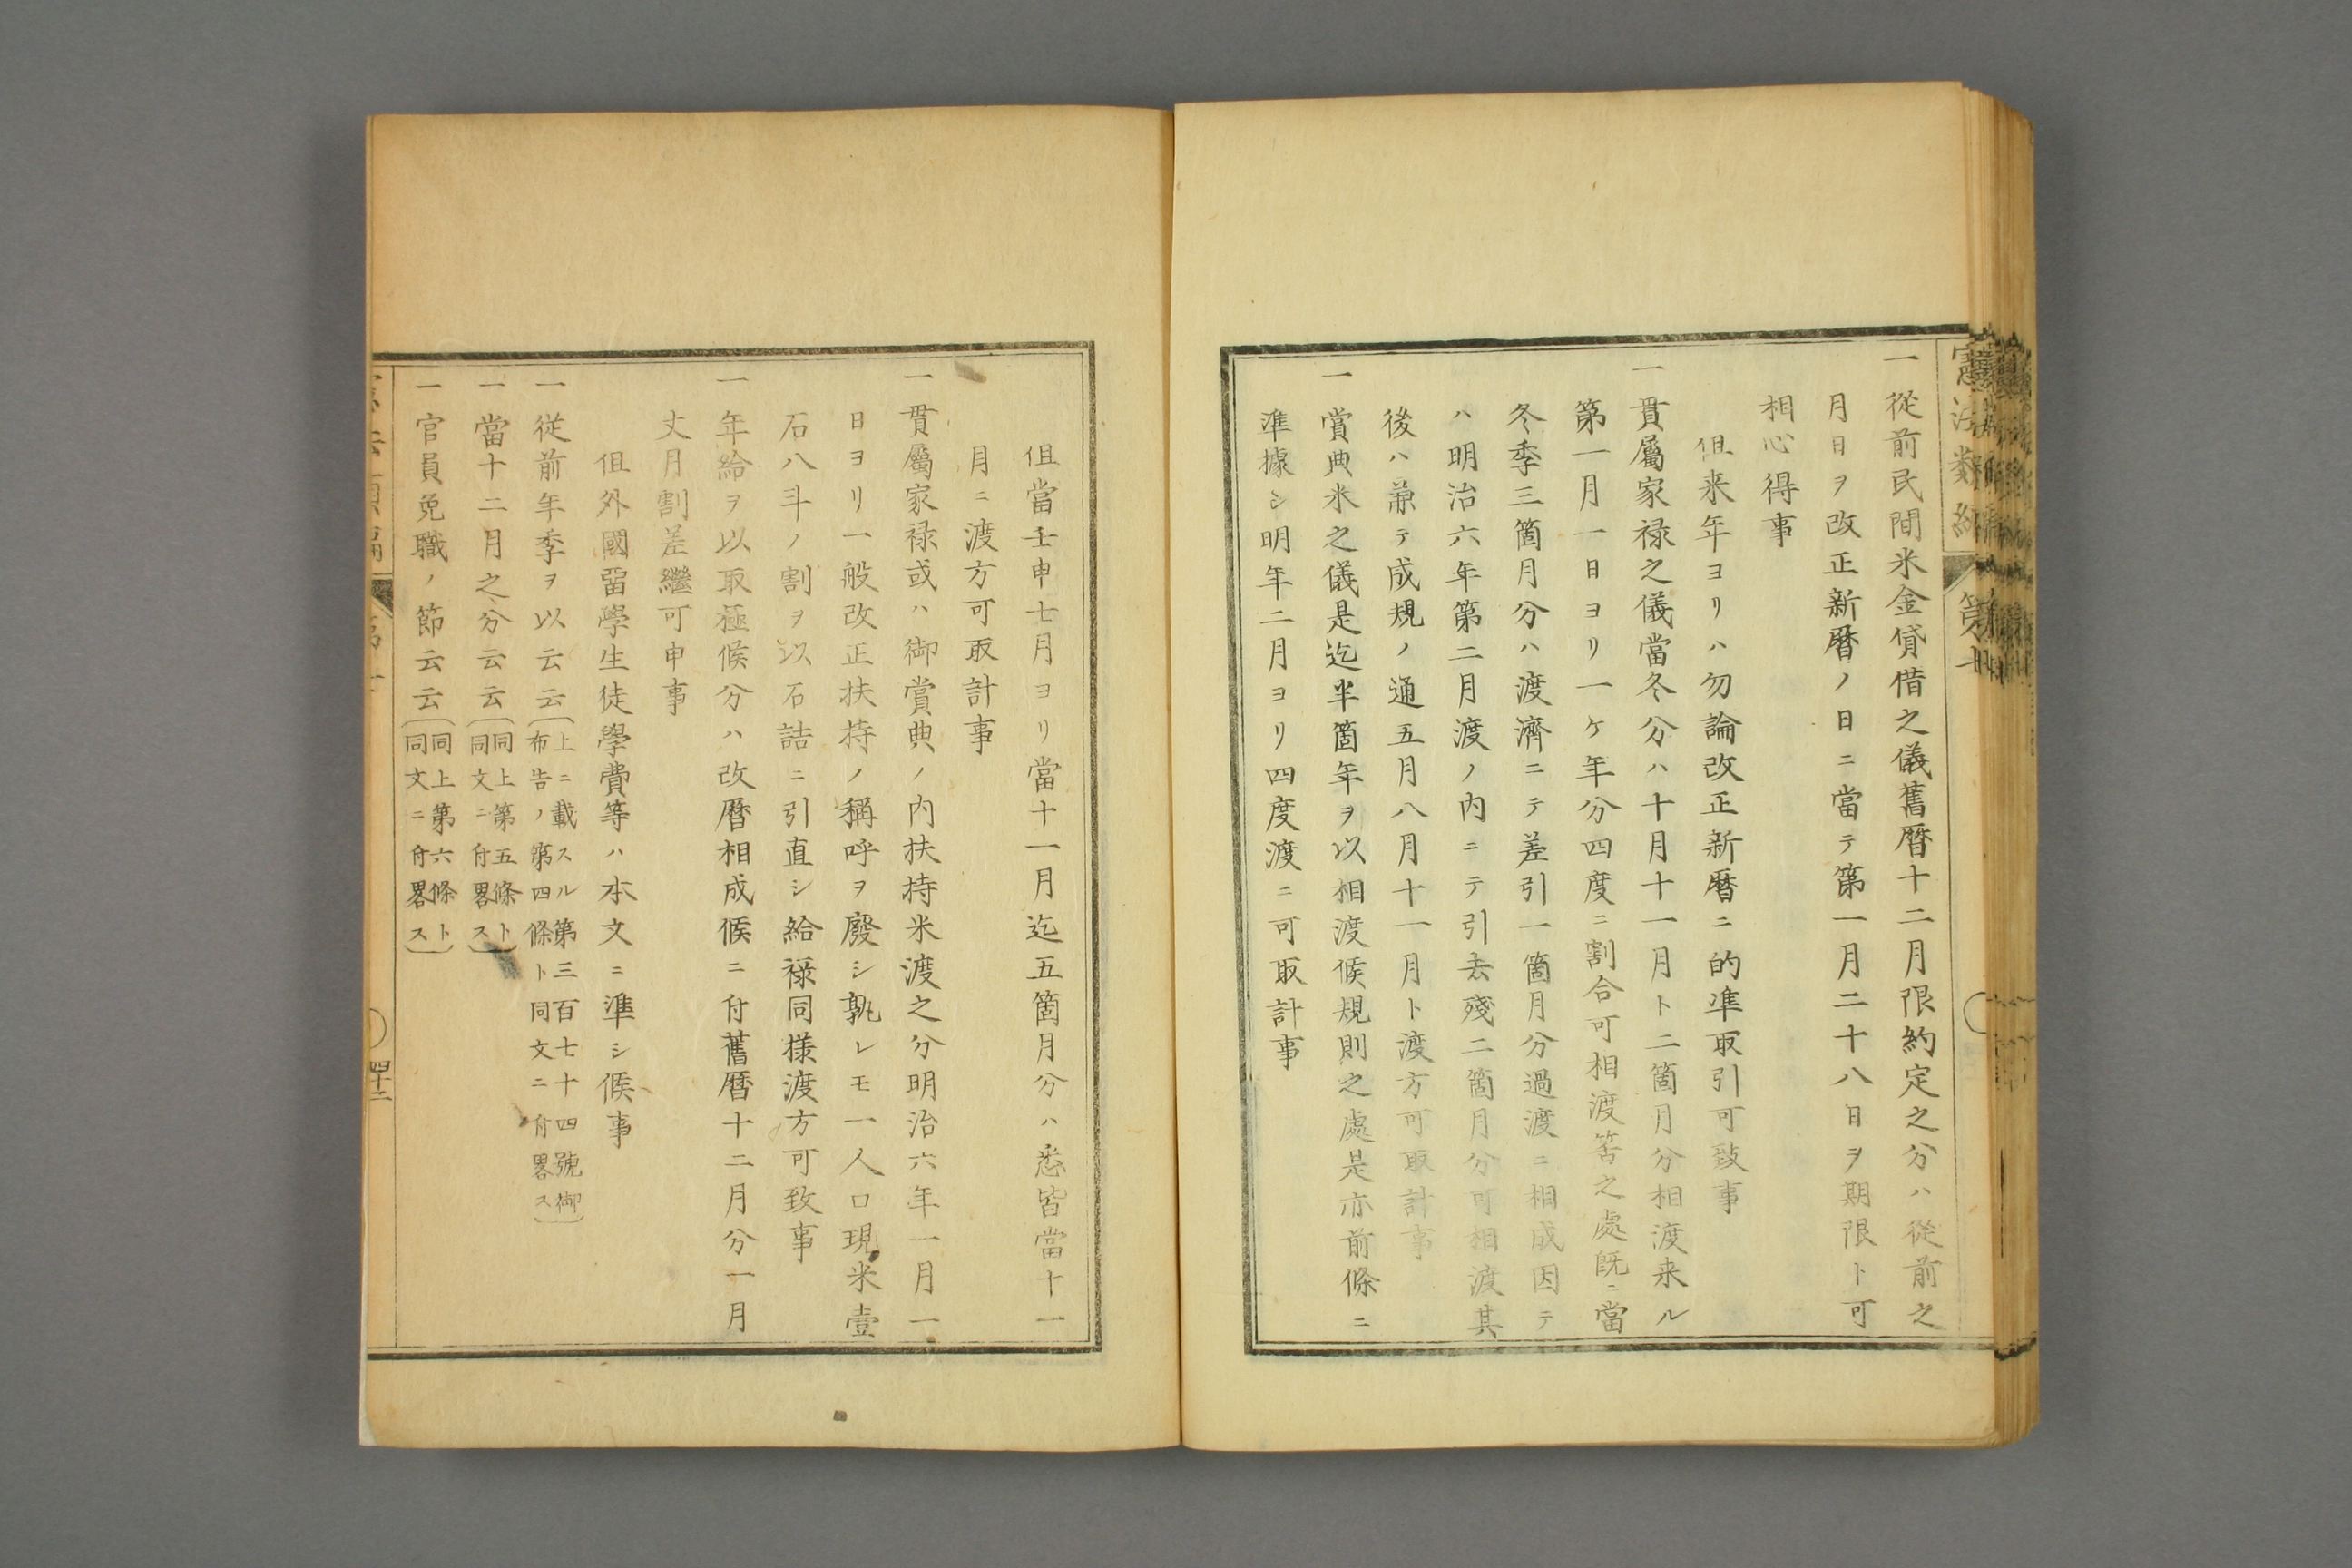 一從前民間米金貸借之儀舊暦十二月限約定之分ハ從前之
月日ヲ改正新暦ノ日ニ當テ第一月二十八日ヲ期限ト可
相心得事
但来年ヨリハ勿論改正新暦ニ的準取引可致事
一貫屬家禄之儀當冬分ハ十月十一月ト二箇月分相渡来ル
第一月一日ヨリ一ケ年分四度ニ割合可相渡筈之處既ニ當
冬季三箇月分ハ渡濟ニテ差引一箇月分過渡ニ相成因テ
ハ明治六年第二月渡ノ内ニテ引去殘二箇月分可相渡其
後ハ兼テ成規ノ通五月八月十一月ト渡方可取計事
一賞典米之儀是迄半箇年ヲ以相渡候規則之處是亦前條ニ
準據シ明年二月ヨリ四度渡ニ可取計事
但當壬申七月ヨリ當十一月迄五箇月分ハ悉皆當十一
月ニ渡方可取計事
一貫屬家禄或ハ御賞典ノ内扶持米渡之分明治六年一月一
日ヨリ一般改正扶持ノ稱呼ヲ廢シ孰レモ一人口現米壹
石八斗ノ割ヲ以石詰ニ引直シ給禄同様渡方可致事
一年給ヲ以取極候分ハ改暦相成候ニ付舊暦十二月分一月
丈月割差繼可申事
但外國留學生徒學費等ハ本文ニ準シ候事
一從前年季ヲ以云云(上ニ載スル第三百七十四號御
布告ノ第四條ト同文ニ付畧ス)
一當十二月之分云云(同上第五條ト
同文ニ付畧ス)
一官員免職ノ節云云(同上第六條ト
同文ニ付畧ス)
四十二